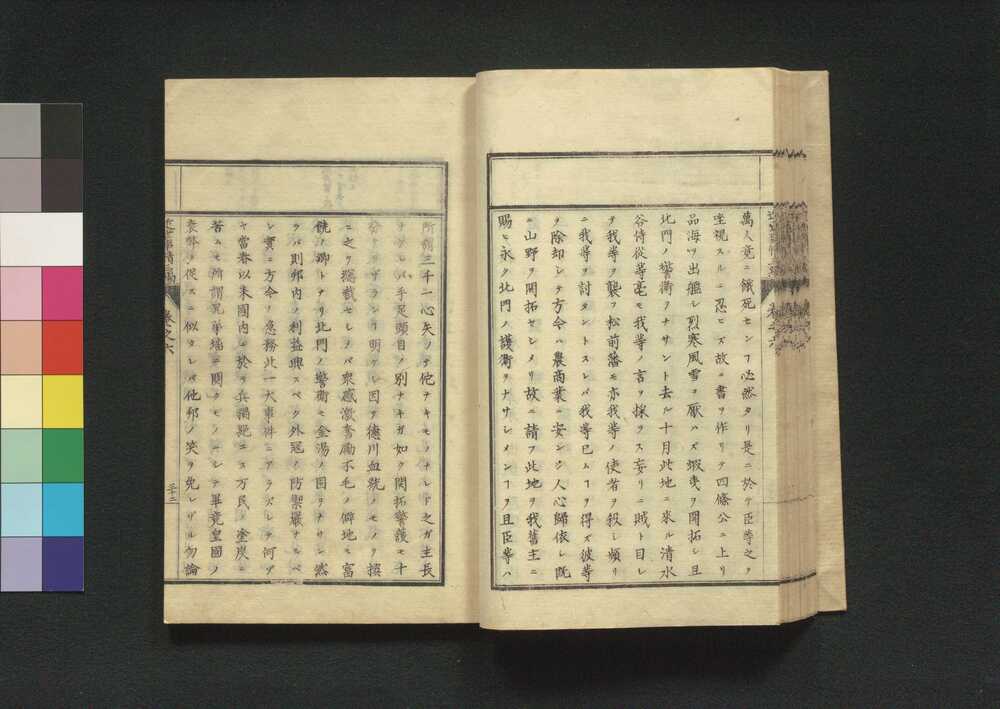 萬人竟ニ餓死セン𪜈必然タリ是ニ於テ臣等之ヲ
坐視スルニ忍ビズ故ニ書ヲ作リテ四條公ニ上リ
品海ヲ出艦シ烈寒風雪ヲ厭ハズ蝦夷ヲ開拓シ且
北門ノ警衛ヲナサント去ル十月此地ニ來ル清水
谷侍從等毫モ我等ノ言ヲ採ラス妄リニ賊ト目シ
我等ヲ襲フ松前藩モ亦我等ノ使者ヲ殺シ頻リ
ニ我等ヲ討タントスレバ我等已ムヿヲ得ズ彼等
ヲ除却シテ方今ハ農商業ニ安ンジ人心歸依シ既
ニ山野ヲ開拓セシメリ故ニ請フ此地ヲ我舊主ニ
賜ヒ永ク北門ノ護衛ヲナサシメンヿヲ且臣等ハ
所謂三千一心矣ノテ他ナキモノナレド之ガ主長
手足頭目ノ別ナキガ如ク開拓警護モ十
分ナラザラン𪜈明ケシ因テ德川血統ノモノヲ撰
ミ之ヲ總裁セシメバ衆感激奮勵不毛ノ僻地モ富
饒ノ鄉トナリ北門ノ警衛モ金湯ノ固リナサン然
ラバ則邦內ノ利益興スベク外寇ノ防禦嚴ナルベ
シ實ニ方今ノ急務此一大事件ニアラズシテ何ゾ
ヤ當春以來國內ニ於テ兵禍起ニス万民ノ塗炭ニ
苦ム所謂兄弟墻ニ鬩クモノニシテ畢竟皇國ノ
衰弊ヲ促スニ似タレバ他邦ノ笑ヲ免レザル勿論
卷之六
三十二